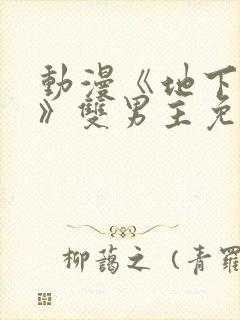 動漫《地下
》雙男主免
柳藹之（青羅